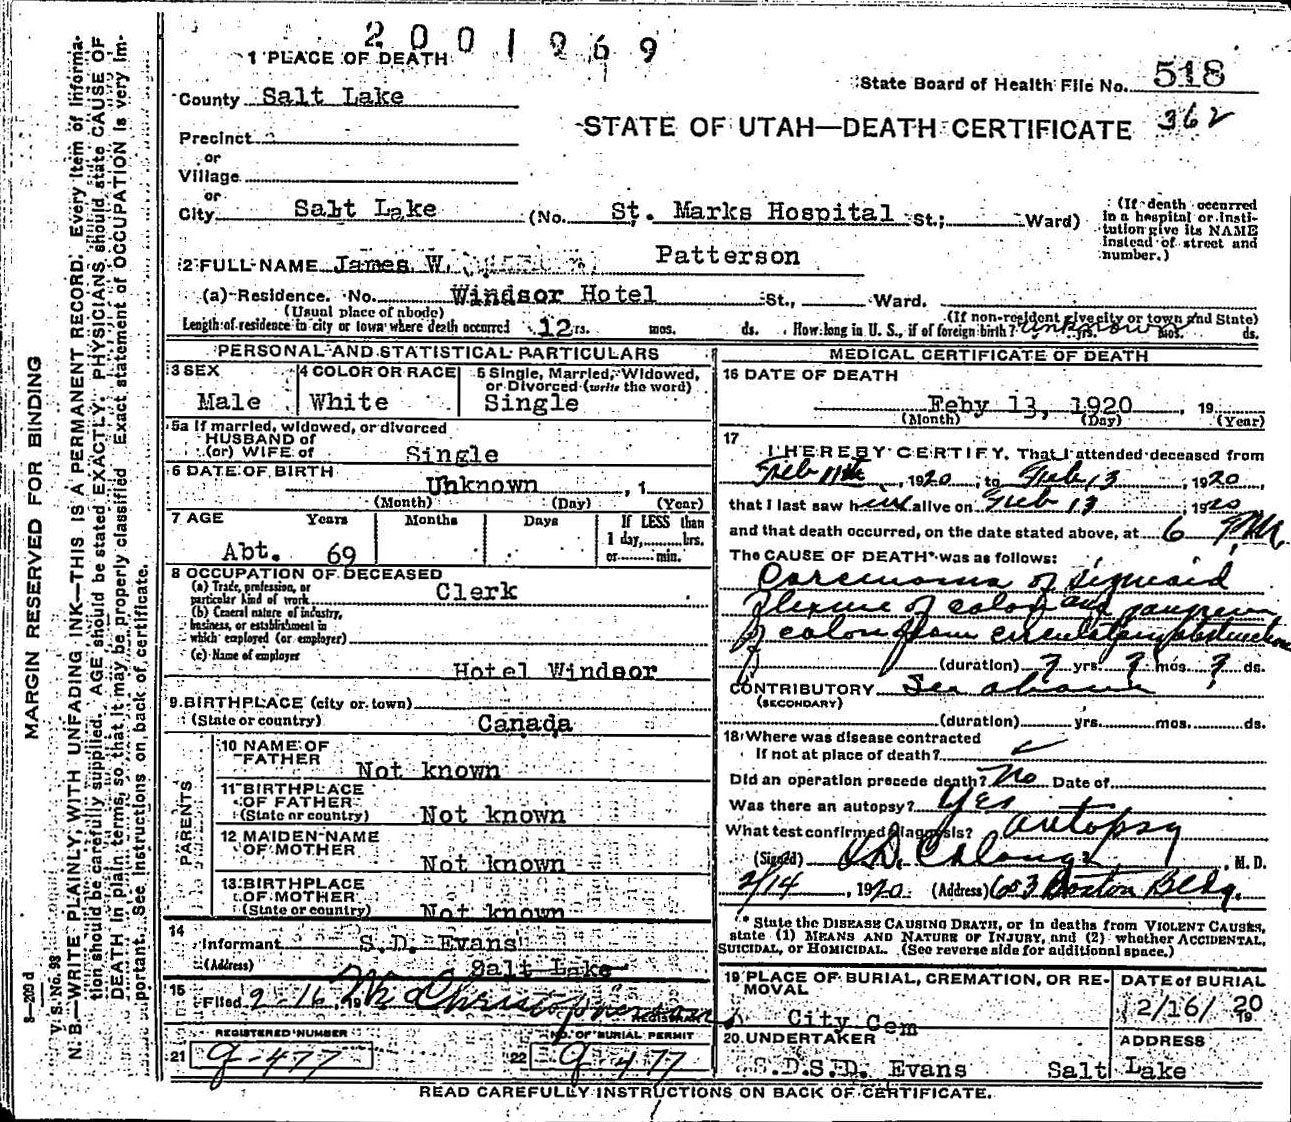 2001969
1 PLACE OF DEATH
State Board of Health File No. 518
County Salt Lake
STATE OF UTAH—DEATH CERTIFICATE 362
Precinct
or
Village
or
City Salt Lake (No. St. Marks Hospital St.; Ward)
(If death occurred in a hospital or institution give its NAME instead of street and number.)
2 FULL NAME James W. Patterson
(a) Residence. No. Windsor Hotel St., Ward.
(Usual place of abode) (If non-resident give city or town and State)
Length of residence in city or town where death occurred 12 rs. mos. ds. How long in U. S., if of foreign birth? Unknown yrs. mos. ds.
PERSONAL AND STATISTICAL PARTICULARS
3 SEX
Male
4 COLOR OR RACE
White
5 Single, Married, Widowed, or Divorced (write the word)
Single
5a If married, widowed, or divorced
HUSBAND of
(or) WIFE of Single
6 DATE OF BIRTH
Unknown , 1
(Month) (Day) (Year)
7 AGE Years Months Days If LESS than
1 day, hrs.
or min.
Abt. 69
8 OCCUPATION OF DECEASED
(a) Trade, profession, or
particular kind of work Clerk
(b) General nature of industry,
business, or establishment in
which employed (or employer)
(c) Name of employer
Hotel Windsor
9 BIRTHPLACE (city or town)
(State or country) Canada
PARENTS
10 NAME OF
FATHER Not known
11 BIRTHPLACE
OF FATHER
(State or country) Not known
12 MAIDEN NAME
OF MOTHER Not known
13 BIRTHPLACE
OF MOTHER
(State or country) Not known
14
Informant S.D. Evans
(Address) Salt Lake
15
Filed 2-16, 19 Christopherson
REGISTRAR
REGISTERED NUMBER
21 G-477
NO. OF BURIAL PERMIT
22 G-477
MEDICAL CERTIFICATE OF DEATH
16 DATE OF DEATH
Feby 13, 1920 , 19
(Month) (Day) (Year)
17
I HEREBY CERTIFY, That I attended deceased from
Feb 11th, 1920, to Feb 13, 1920,
that I last saw him alive on Feb 13 1920
and that death occurred, on the date stated above, at 6 P.M.
The CAUSE OF DEATH* was as follows:
Carcinoma of sigmoid
flexure of colon and gangrene
of colon from circulatory obstruction
(duration) ? yrs. ? mos. ? ds.
CONTRIBUTORY See above
(SECONDARY)
(duration) yrs. mos. ds.
18 Where was disease contracted
If not at place of death?
Did an operation precede death? No Date of
Was there an autopsy? Yes
What test confirmed diagnosis? Autopsy
(Signed) M. D.
2/14, 1920 (Address) 603 Boston Bldg.
* State the DISEASE CAUSING DEATH, or in deaths from VIOLENT CAUSES,
state (1) MEANS AND NATURE OF INJURY, and (2) whether ACCIDENTAL,
SUICIDAL, or HOMICIDAL. (See reverse side for additional space.)
19 PLACE OF BURIAL, CREMATION, OR RE-
MOVAL
City Cem
DATE of BURIAL
2/16/ 20
19
20 UNDERTAKER
S.D.S.D. Evans
ADDRESS
Salt Lake
READ CAREFULLY INSTRUCTIONS ON BACK OF CERTIFICATE.
MARGIN RESERVED FOR BINDING
N. B.—WRITE PLAINLY, WITH UNFADING INK—THIS IS A PERMANENT RECORD. Every item of informa-
tion should be carefully supplied. AGE should be stated EXACTLY. PHYSICIANS should state CAUSE OF
DEATH in plain terms, so that it may be properly classified. Exact statement of OCCUPATION is very im-
portant. See instructions on back of certificate.
V. S. No. 98